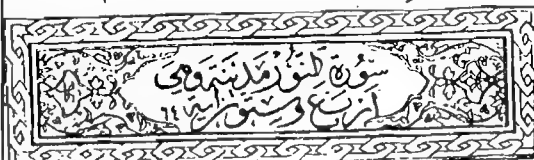 سورة النور مدنية وهي
اربع وستون آية ٦٤